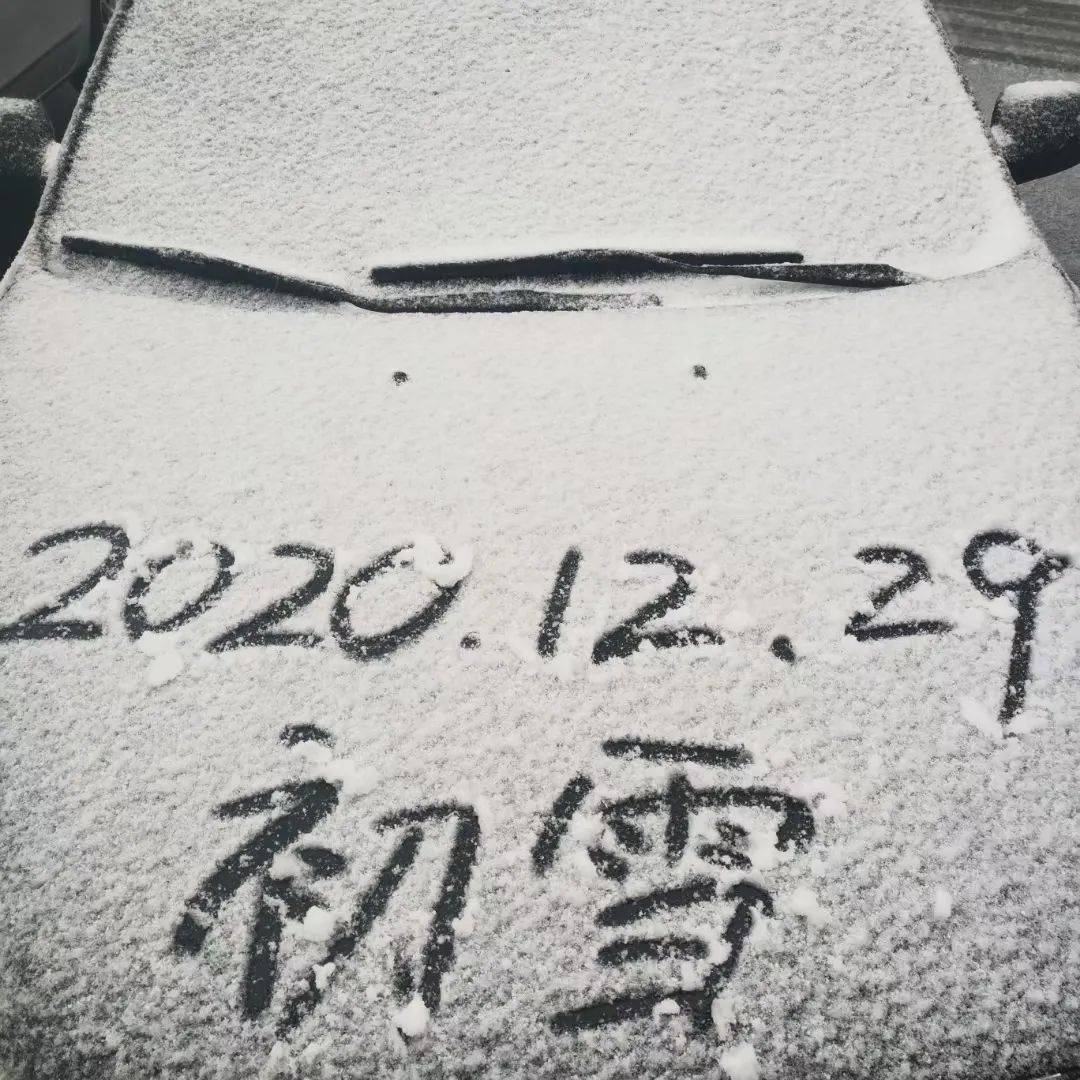 2020.12.29
初雪